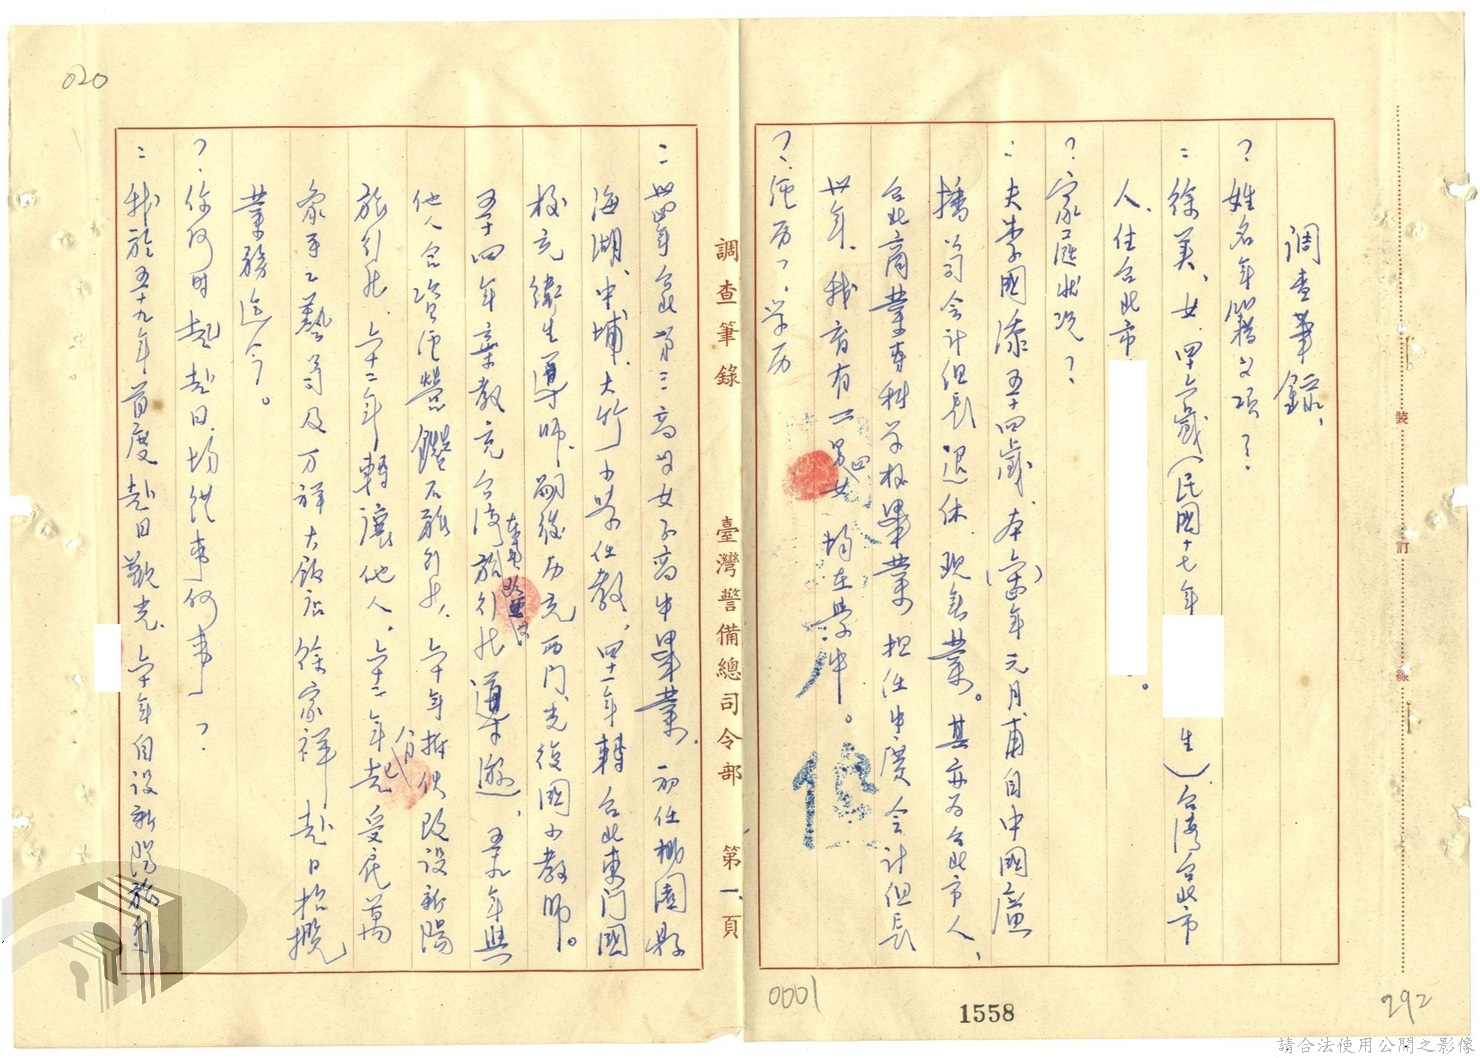 調查筆錄
？姓名年籍等項？
：徐美、女、四六歲（民國十七年
生）台灣台北市
人、住台北市
。
？家庭狀況？
：夫李國漆五十四歲、本（六四）年元月甫自中國廣
播公司會計組長退休、現無業。其亦為台北市人、
台北商業專科學校畢業、担任中廣會計組長
卅年、我育有二男四女、均在學中。
？經历、学历
：卅四年台北第三高等女子高中畢業、初任桃園縣
海湖、中埔、大竹小學任教、四十一年轉台北東门國
校充衛生導師、嗣後历充西门、光復國小教師。
五十四年棄教充台湾旅行社導遊、五九年與
他人合資經營鑽石旅行社、六十年拆伙改設新陽
旅行社、六十二年轉讓他人、六十二年起受雇萬
象手工藝等及万祥大飯店徐家祥赴日招攬
業務迄今。
？你何时起赴日、均從事何事？
：我於五十九年首度赴日觀光、六十年自設新陽旅行
調查筆錄
臺灣警備總司令部
第一頁
裝
訂
線
020
0001
1558
292
請合法使用公開之影像